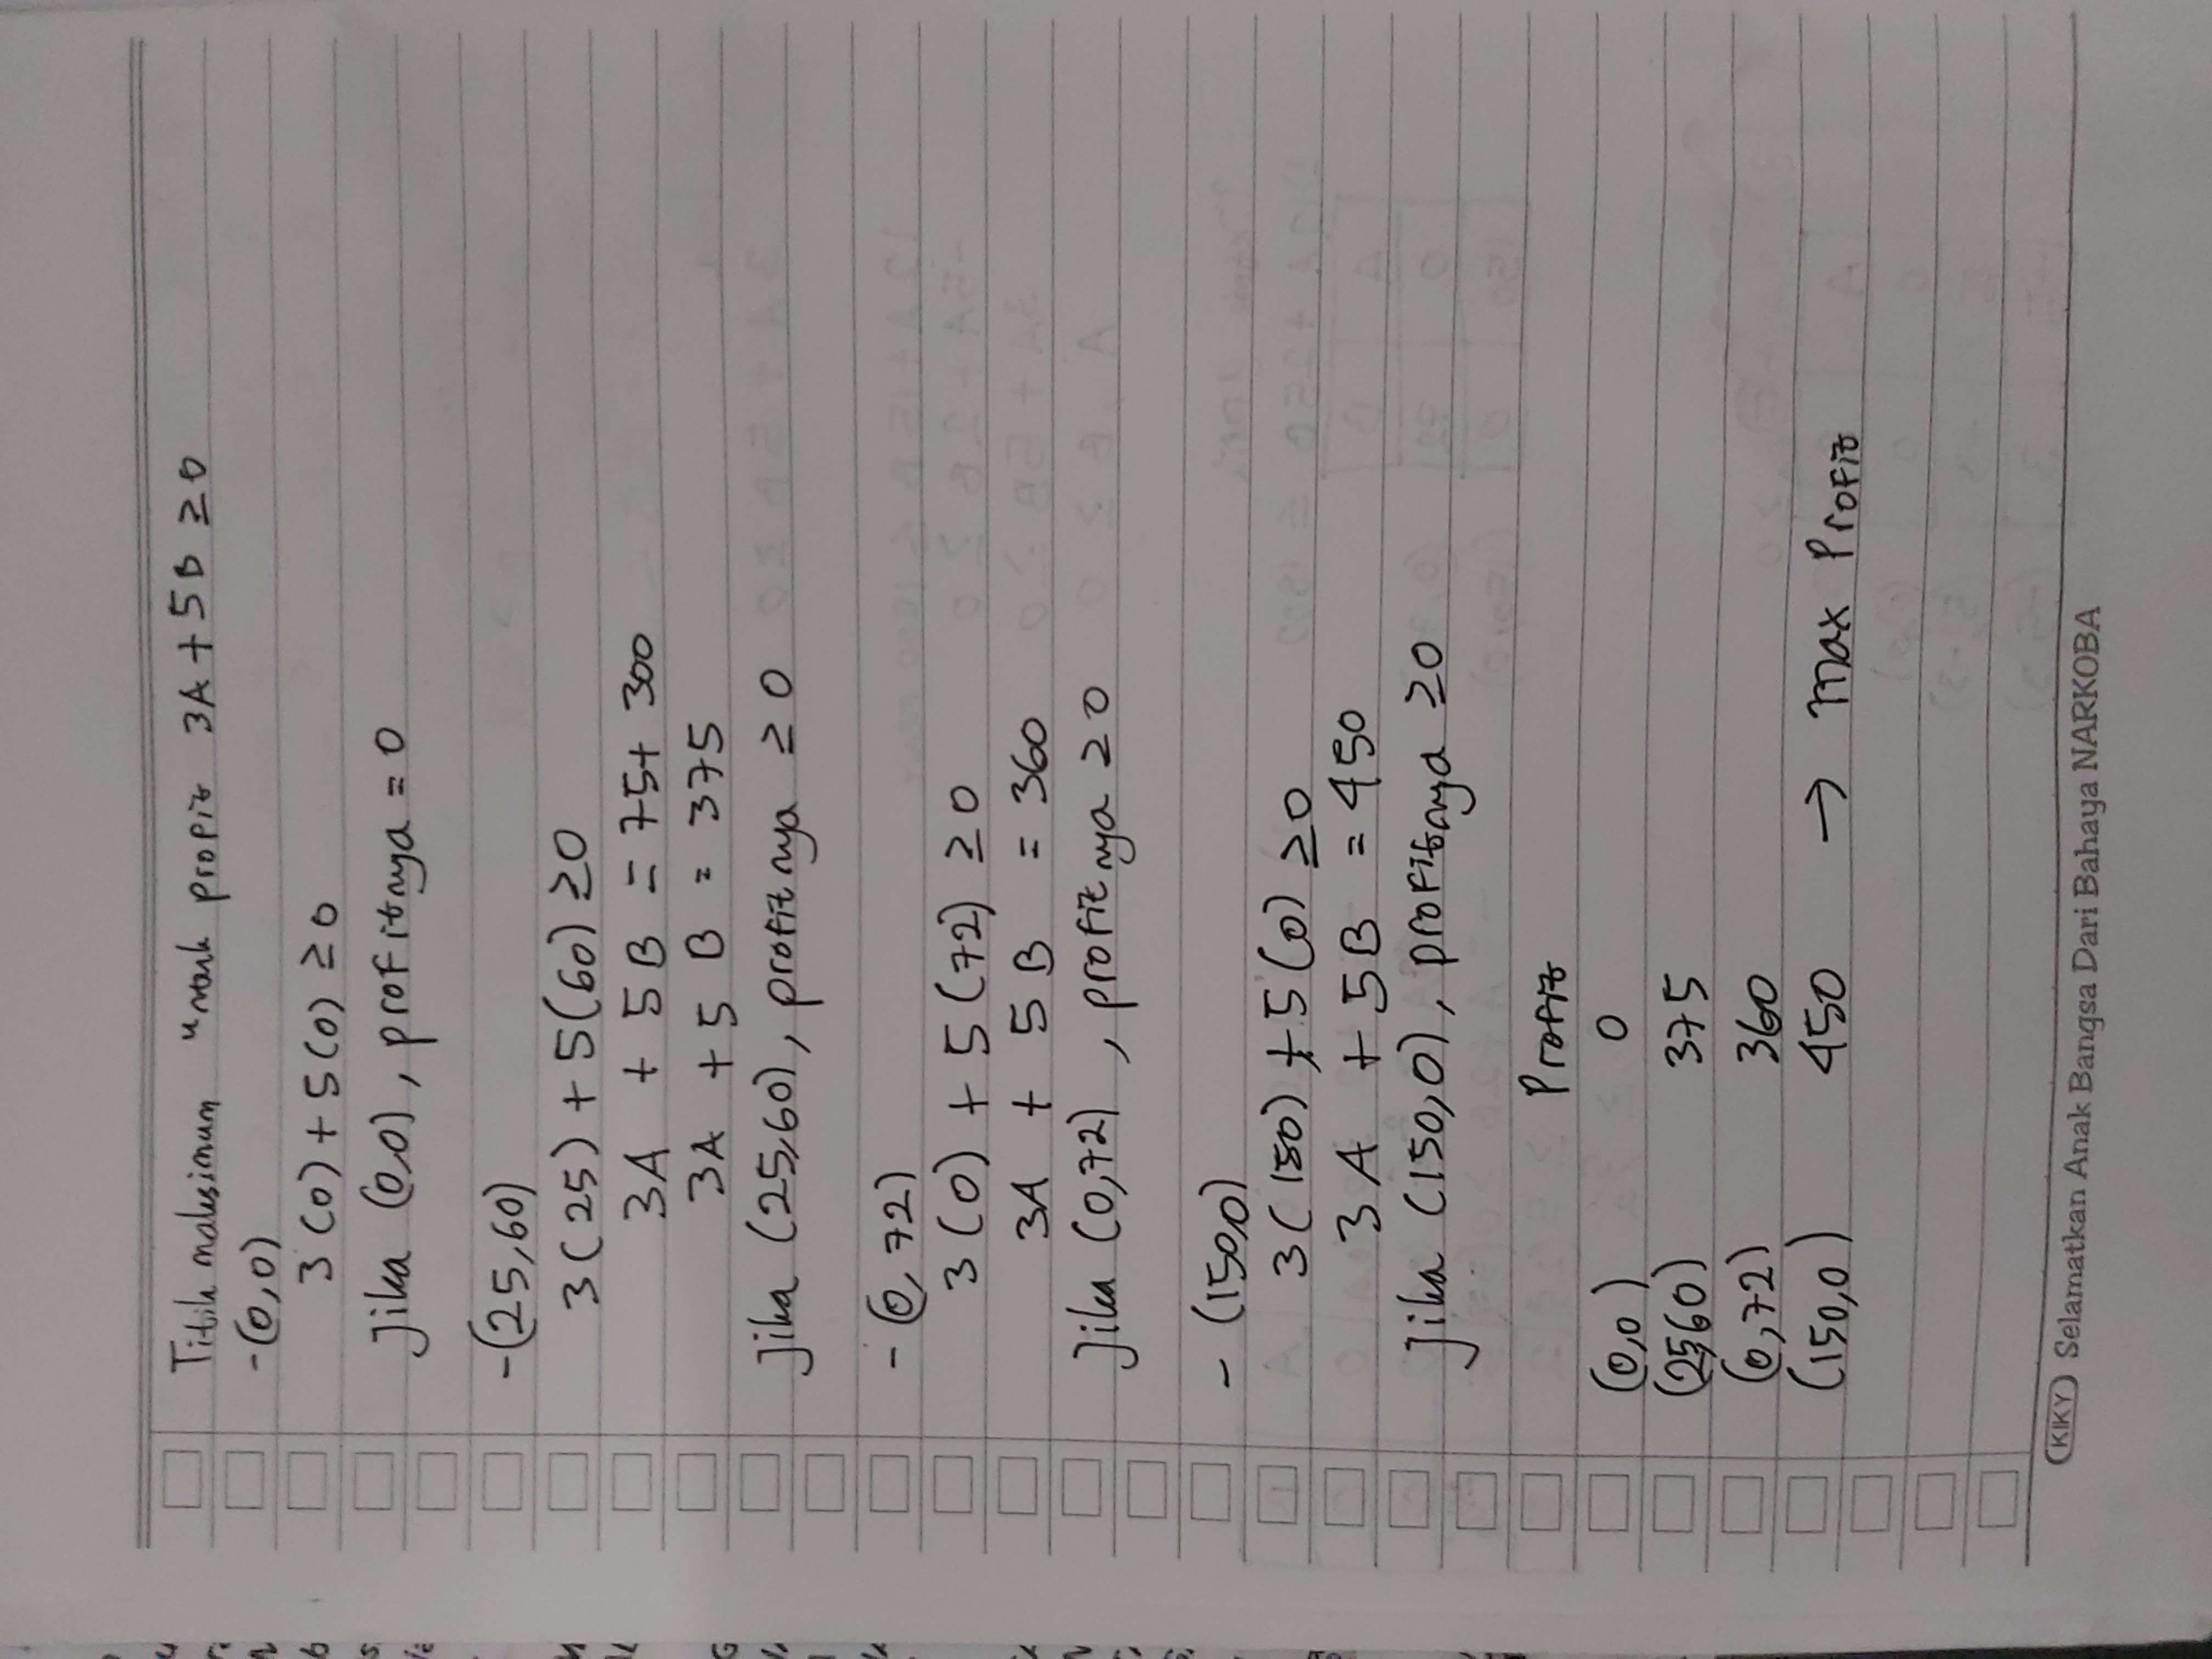 Titik maksimum untuk profit 3A + 5B ≥ 0
-(0,0)
3(0) + 5(0) ≥ 0
Jika (0,0), profitnya = 0
-(25,60)
3(25) + 5(60) ≥ 0
3A + 5B = 75 + 300
3A + 5B = 375
Jika (25,60), profitnya ≥ 0
-(0,72)
3(0) + 5(72) ≥ 0
3A + 5B = 360
Jika (0,72), profitnya ≥ 0
- (150,0)
3(150) + 5(0) ≥ 0
3A + 5B = 450
Jika (150,0), profitnya ≥ 0
Profit
(0,0) 0
(25,60) 375
(0,72) 360
(150,0) 450 → max Profit
KIKY Selamatkan Anak Bangsa Dari Bahaya NARKOBA